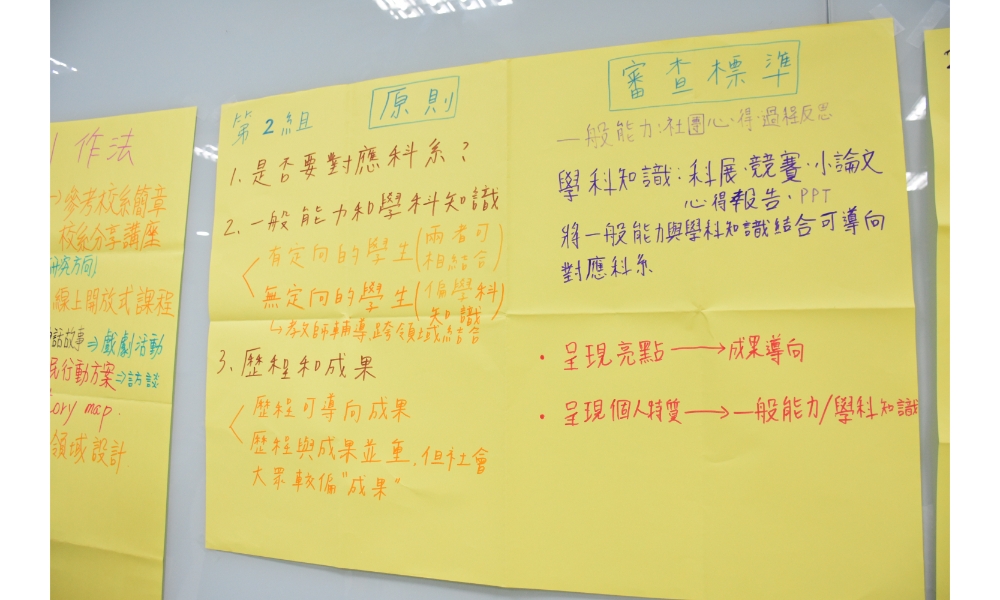 作法
參考校系簡章
校系分享講座
研究方向
線上開放式課程
話故事⇒戲劇活動
民行動方案⇒訪談
ory map.
領域設計
第2組
原則
1. 是否要對應科系？
2. 一般能力和學科知識
有定向的學生(兩者可相結合)
無定向的學生(偏學科知識)
↳教師輔導跨領域結合
3. 歷程和成果
歷程可導向成果
歷程與成果並重，但社會
大眾較偏"成果"
審查標準
一般能力:社團心得·過程反思
學科知識:科展·競賽·小論文
心得報告·PPT
將一般能力與學科知識結合可導向
對應科系
• 呈現亮點→成果導向
• 呈現個人特質→一般能力/學科知識